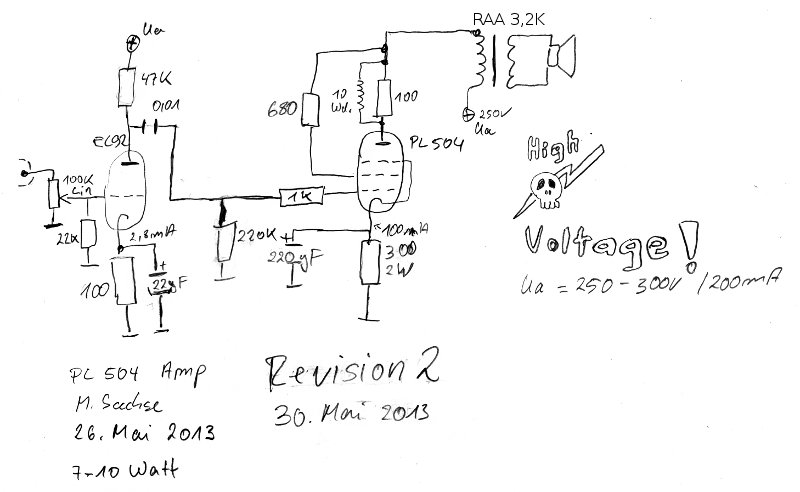 Ua
RAA 3,2K
47K
0,01
680
10
Wd.
100
250V
Ua
EC92
PL504
High
100K
Lin
1K
22K
2,8mA
220K
100mA
220µF
300
2W
Voltage!
100
22µF
Ua = 250-300V /200mA
PL 504 Amp
M. Sachse
26. Mai 2013
7-10 Watt
Revision 2
30. Mai 2013